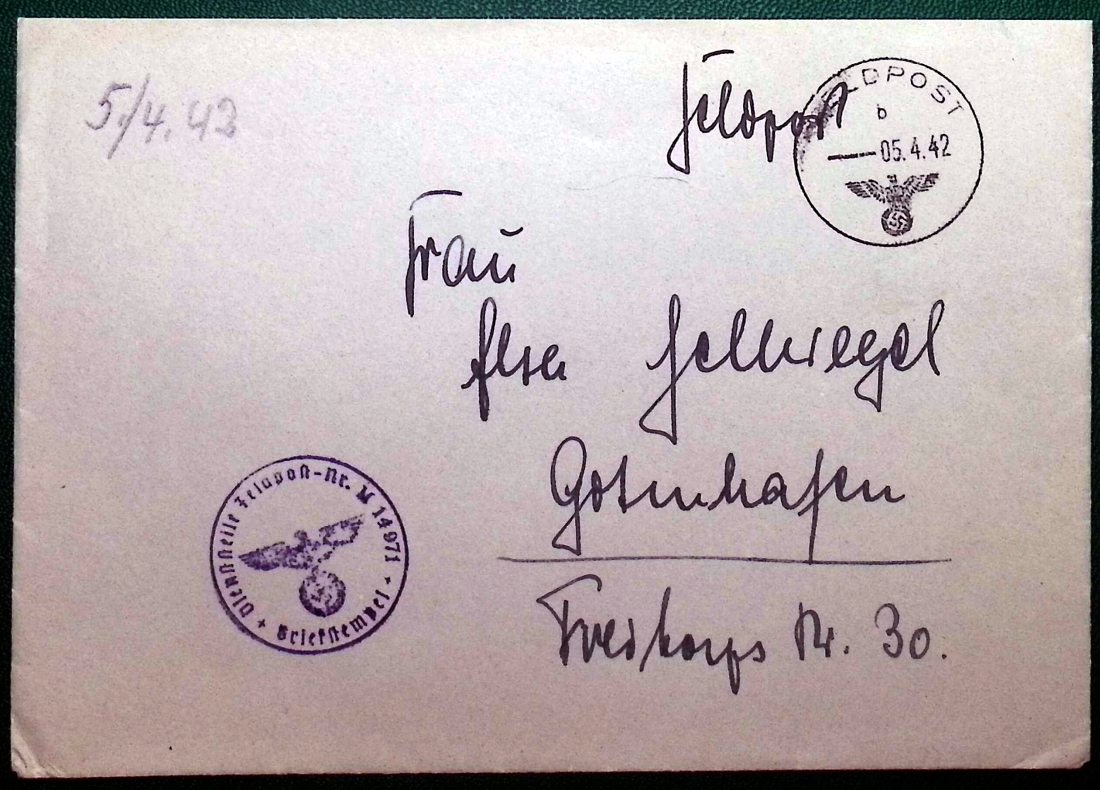 5./4.42
Feldpost
FELDPOST
b
05.4.42
Frau
Elsa Hellwegel
Gotenhafen
Freikorps Nr. 30.
Dienststelle Feldpost-Nr. M 14971
Briefstempel